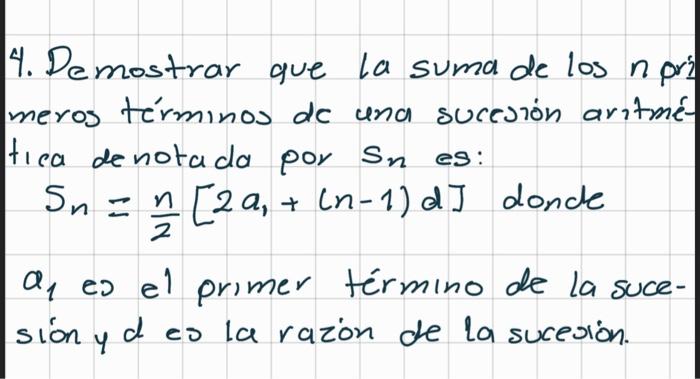 4. Demostrar que la suma de los n pri
meros términos de una sucesión aritmé-
tica denotada por Sn es:
Sn = n/2 [2a₁ + (n-1) d] donde
a₁ es el primer término de la suce-
sión y d es la razón de la sucesión.